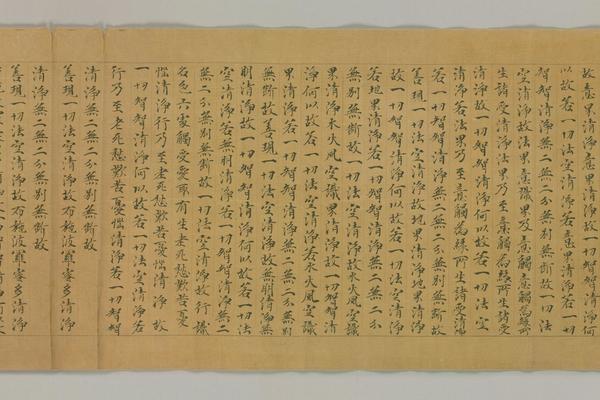 故意界清淨意界清淨故一切智智清淨何
以故若一切法空清淨若意界清淨若一切
智智清淨無二無二分無別無斷故一切法
空清淨故法界意識界及意觸意觸為緣所
生諸受清淨法界乃至意觸為緣所生諸受
清淨故一切智智清淨何以故若一切法空
清淨若法界乃至意觸為緣所生諸受清淨
若一切智智清淨無二無二分無別無斷故
善現一切法空清淨故地界清淨地界清淨
故一切智智清淨何以故若一切法空清淨
若地界清淨若一切智智清淨無二無二分
無別無斷故一切法空清淨故水火風空識
界清淨水火風空識界清淨故一切智智清
淨何以故若一切法空清淨若水火風空識
界清淨若一切智智清淨無二無二分無別
無斷故善現一切法空清淨故無明清淨無
明清淨故一切智智清淨何以故若一切法
空清淨若無明清淨若一切智智清淨無二
無二分無別無斷故一切法空清淨故行識
名色六處觸受愛取有生老死愁歎苦憂
惱清淨行乃至老死愁歎苦憂惱清淨故
一切智智清淨何以故若一切法空清淨若
行乃至老死愁歎苦憂惱清淨若一切智智
清淨無二無二分無別無斷故
善現一切法空清淨故布施波羅蜜多清淨
清淨無二無二分無別無斷故
善現一切法空清淨故布施波羅蜜多清淨